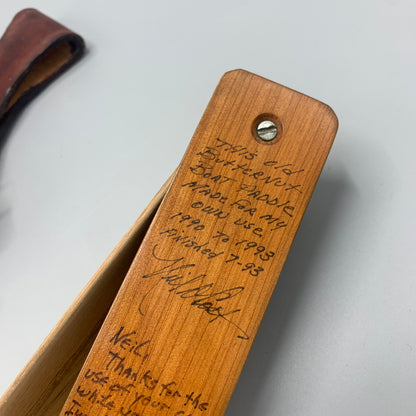 THIS OLD
BUTTERNUT
BOAT PADDLE
MADE FOR MY
OWN USE.
1990 TO 1993
FINISHED 7-93
NEIL,
Thanks for the
use of your
while